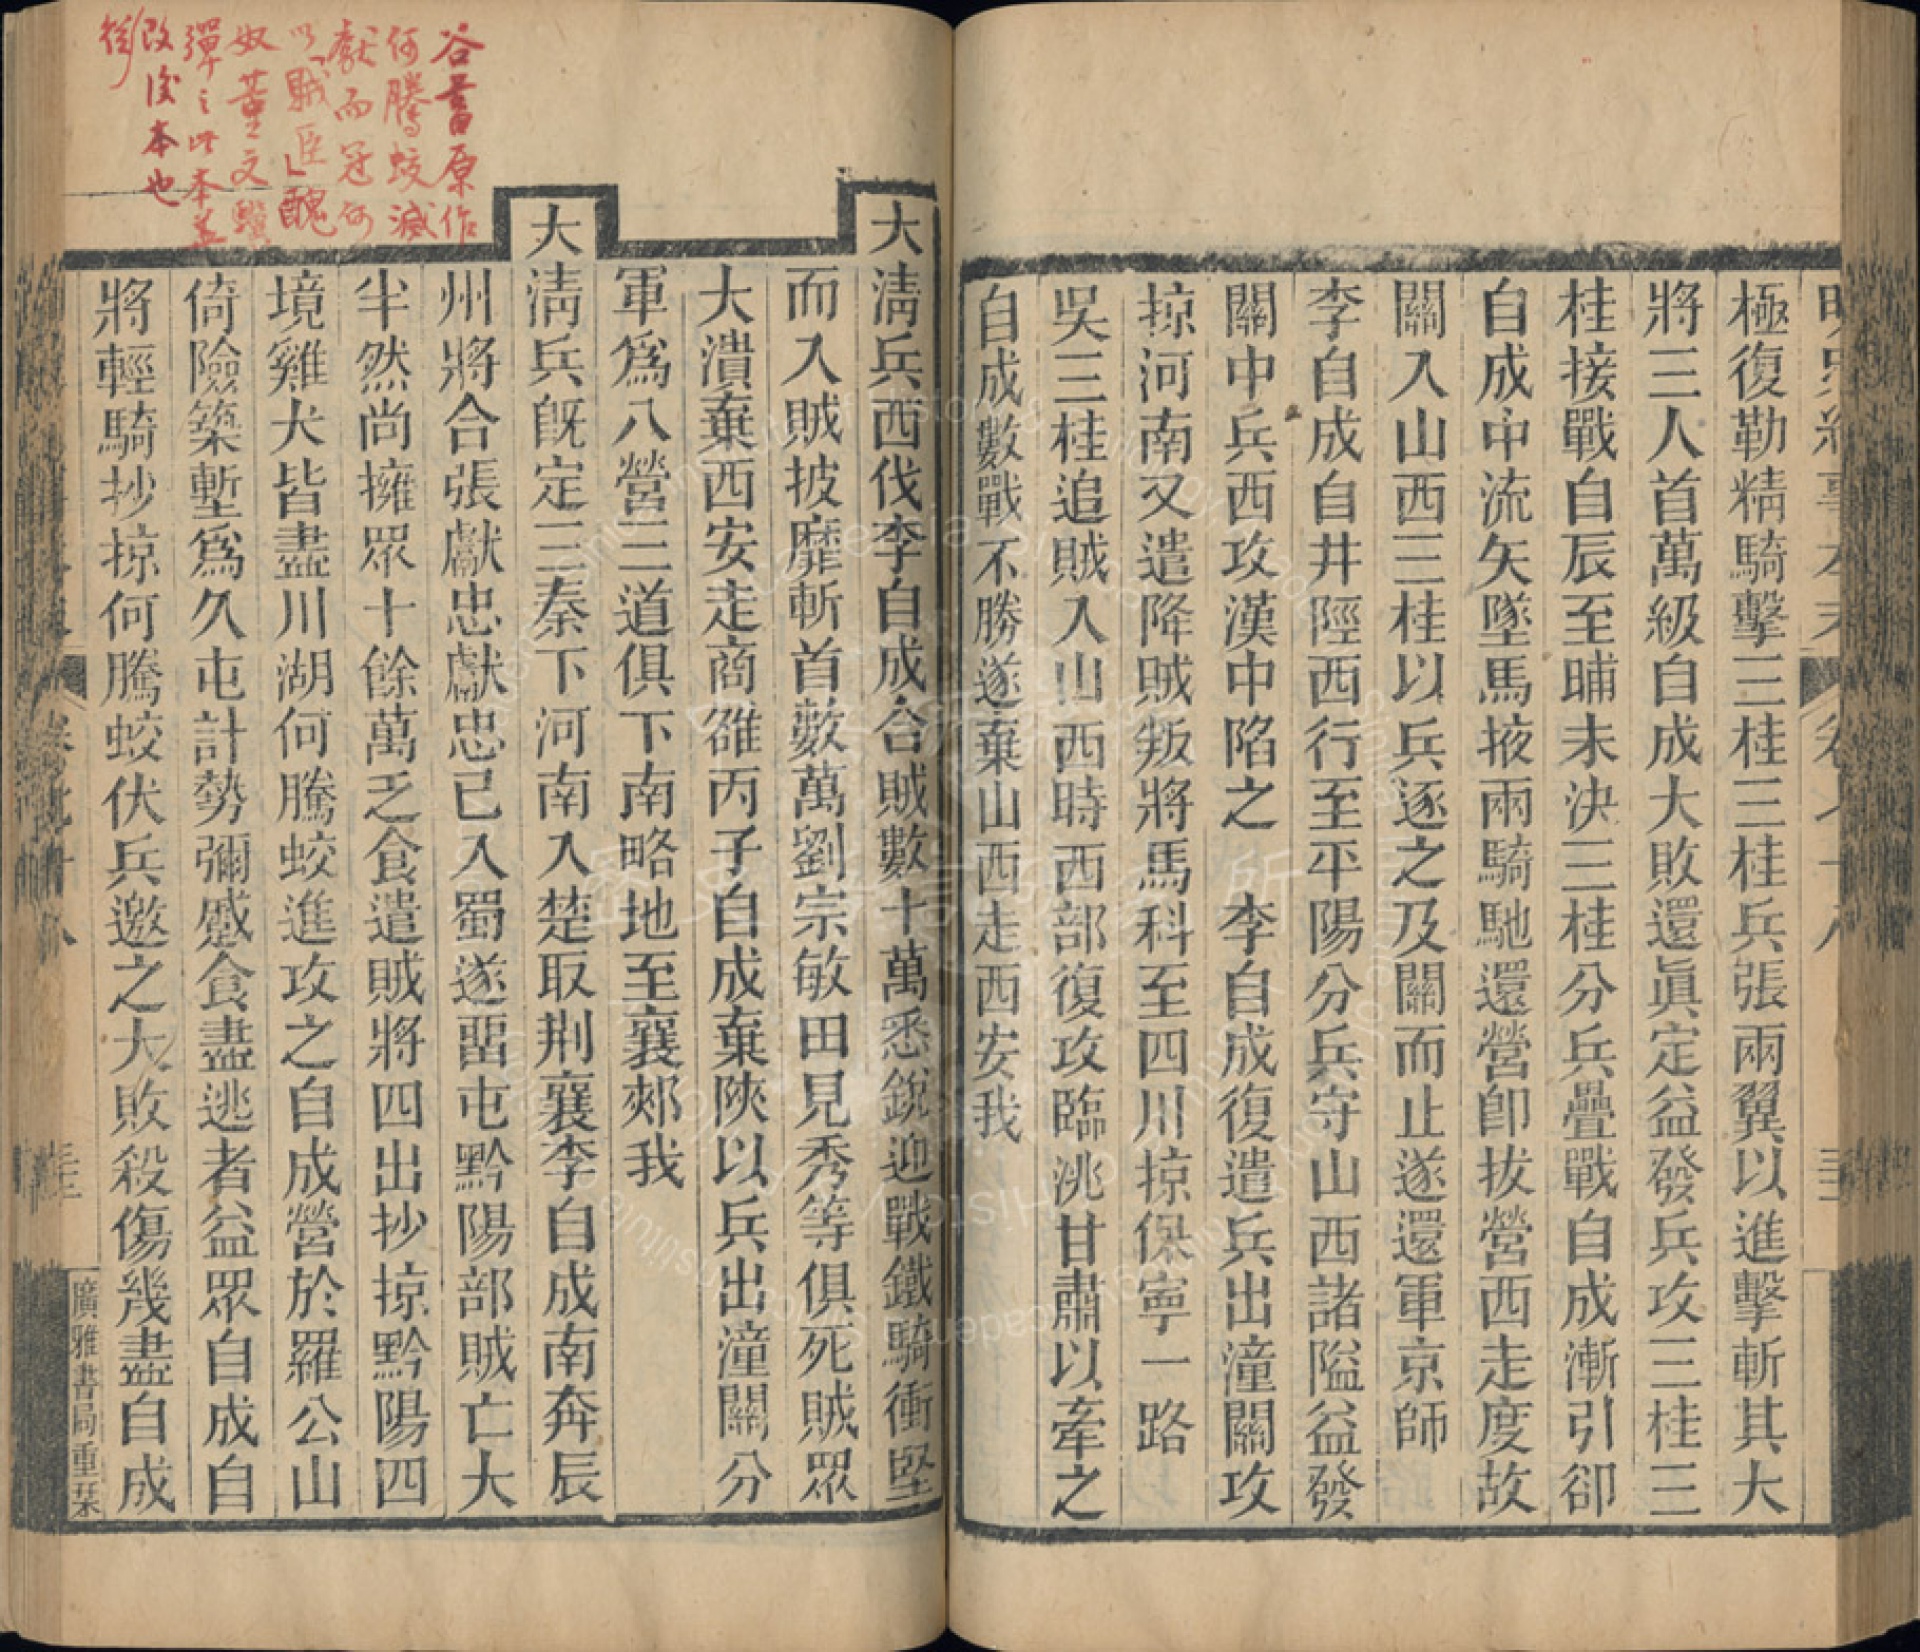 極復勒精騎擊三桂三桂兵張兩翼以進擊斬其大
將三人首萬級自成大敗還眞定益發兵攻三桂三
桂接戰自辰至晡未決三桂分兵疊戰自成漸引卻
自成中流矢墜馬掖兩騎馳還營卽拔營西走度故
關入山西三桂以兵逐之及關而止遂還軍京師
李自成自井陘西行至平陽分兵守山西諸隘益發
關中兵西攻漢中陷之　李自成復遣兵出潼關攻
掠河南又遣降賊叛將馬科至四川掠保寧一路
吳三桂追賊入山西時西部復攻臨洮甘肅以牽之
自成數戰不勝遂棄山西走西安我
大淸兵西伐李自成合賊數十萬悉銳迎戰鐵騎衝堅
而入賊披靡斬首數萬劉宗敏田見秀等俱死賊眾
大潰棄西安走商雒丙子自成棄陝以兵出潼關分
軍爲八營三道俱下南略地至襄郟我
大淸兵旣定三秦下河南入楚取荆襄李自成南奔辰
州將合張獻忠獻忠已入蜀遂留屯黔陽部賊亡大
半然尚擁眾十餘萬乏食遣賊將四出抄掠黔陽四
境雞犬皆盡川湖何騰蛟進攻之自成營於羅公山
倚險築塹爲久屯計勢彌蹙食盡逃者益眾自成自
將輕騎抄掠何騰蛟伏兵邀之大敗殺傷幾盡自成
廣雅書局重栞
谷書原作
何騰蛟滅
獻而冠何
以「賊臣」醜
奴董文驥
彈之此本蓋
改後本也